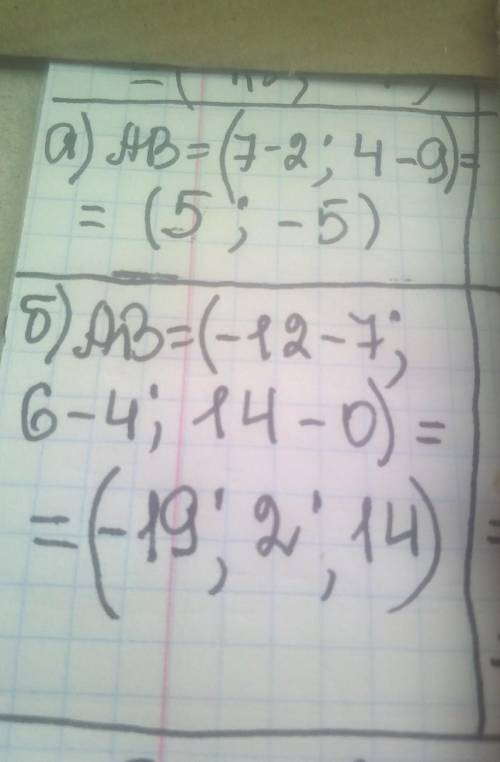 а) AB = (7 - 2; 4 - 9) =
= (5; - 5)
б) AB = (-12 - 7;
6 - 4; 14 - 0) =
= (-19; 2; 14)